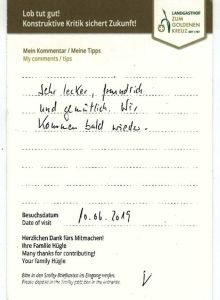 Lob tut gut!
Konstruktive Kritik sichert Zukunft!
LANDGASTHOF
ZUM
GOLDENEN
KREUZ
Mein Kommentar / Meine Tipps
My comments / tips
Sehr lecker, freundlich
und gemütlich. Wir
kommen bald wieder.
Besuchsdatum 10.06.2019
Date of visit
Herzlichen Dank fürs Mitmachen!
Ihre Familie Hügle
Many thanks for contributing!
Your family Hügle
Bitte in den Smiley-Briefkasten im Eingang werfen.
Please deposite in the Smiley post box in the entrance.